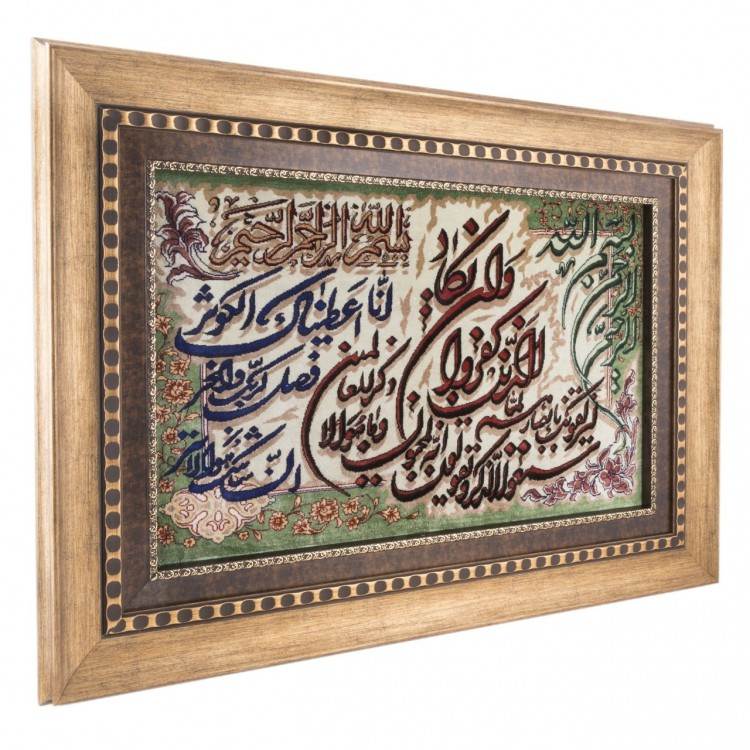 بسم الله
الرحمن
الرحیم
وان یکاد
الذین کفروا
لیزلقونک بابصارهم لما
سمعوا الذکر و یقولون انه لمجنون
وما هو الا
ذکر للعالمین
بسم الله الرحمن الرحیم
انا اعطیناک الکوثر
فصل لربک وانحر
ان شانئک هو الابتر